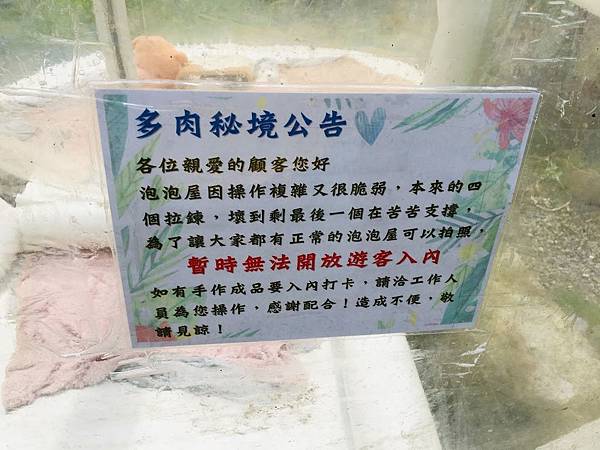 多肉秘境公告
各位親愛的顧客您好
泡泡屋因操作複雜又很脆弱，本來的四
個拉鍊，壞到剩最後一個在苦苦支撐，
為了讓大家都有正常的泡泡屋可以拍照，
暫時無法開放遊客入內
如有手作成品要入內打卡，請洽工作人
員為您操作，感謝配合！造成不便，敬
請見諒！